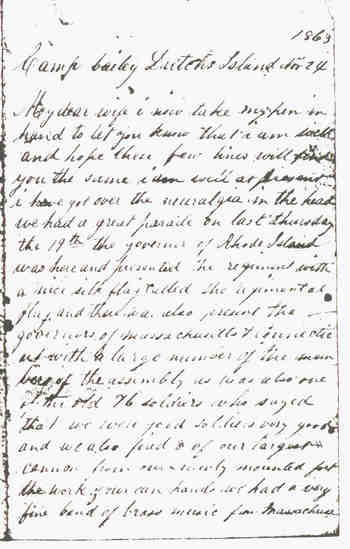 1863
Camp bailey Dutchs Island Nov 24
My dear wife i now take my pen in
hand to let you know that i am well
and hope these few lines will find
you the same i am well at present
i have got over the neuralgea in the head
we had a great parade on last thursday
the 19th the governer of Rhode Island
was here and presented the regiment with
a nice silk flag called the regimental
flag and thire was also present the
governers of massachusetts & connectic
ut with a large number of the mem
bers of the assembly as was also one
of the old 76 soldiers who sayed
that we were good soldiers very good
and we also fired 8 of our largest
cannon from our newly mounted fort
the work of our own hands we had a very
fine band of brass music from Massachuse